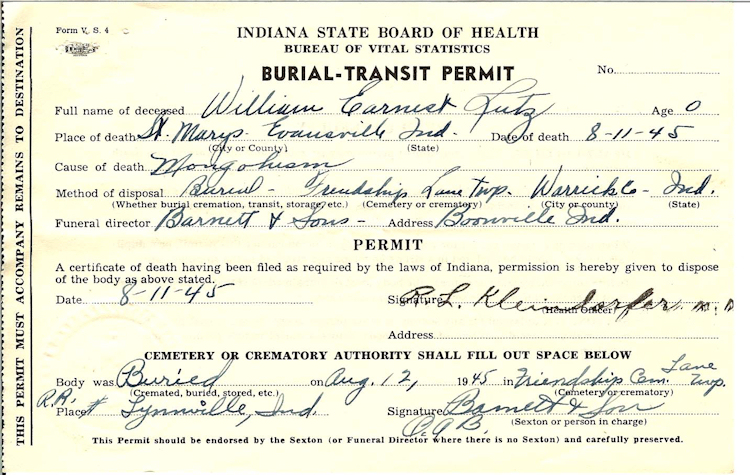 Form V. S. 4
INDIANA STATE BOARD OF HEALTH
BUREAU OF VITAL STATISTICS
BURIAL-TRANSIT PERMIT
No.
Full name of deceased William Earnest Lutz Age 0
Place of death St. Marys Evansville Ind. Date of death 8-11-45
(City or County) (State)
Cause of death Mongolism
Method of disposal Burial - Friendship Lane Twp. Warrick Co - Ind.
(Whether burial cremation, transit, storage, etc.) (Cemetery or crematory) (City or county) (State)
Funeral director Barnett & Sons - Address Boonville Ind.
PERMIT
A certificate of death having been filed as required by the laws of Indiana, permission is hereby given to dispose
of the body as above stated.
Date 8-11-45 Signature R. L. Kleindorfer M. D
(Health Officer)
Address
CEMETERY OR CREMATORY AUTHORITY SHALL FILL OUT SPACE BELOW
Body was Buried on Aug. 12, 1945 in Friendship Cem. Lane Twp.
(Cremated, buried, stored, etc.) (Cemetery or crematory)
R.R. Place # Lynnville, Ind. Signature Barnett & Son
(Sexton or person in charge)
This Permit should be endorsed by the Sexton (or Funeral Director where there is no Sexton) and carefully preserved.
THIS PERMIT MUST ACCOMPANY REMAINS TO DESTINATION